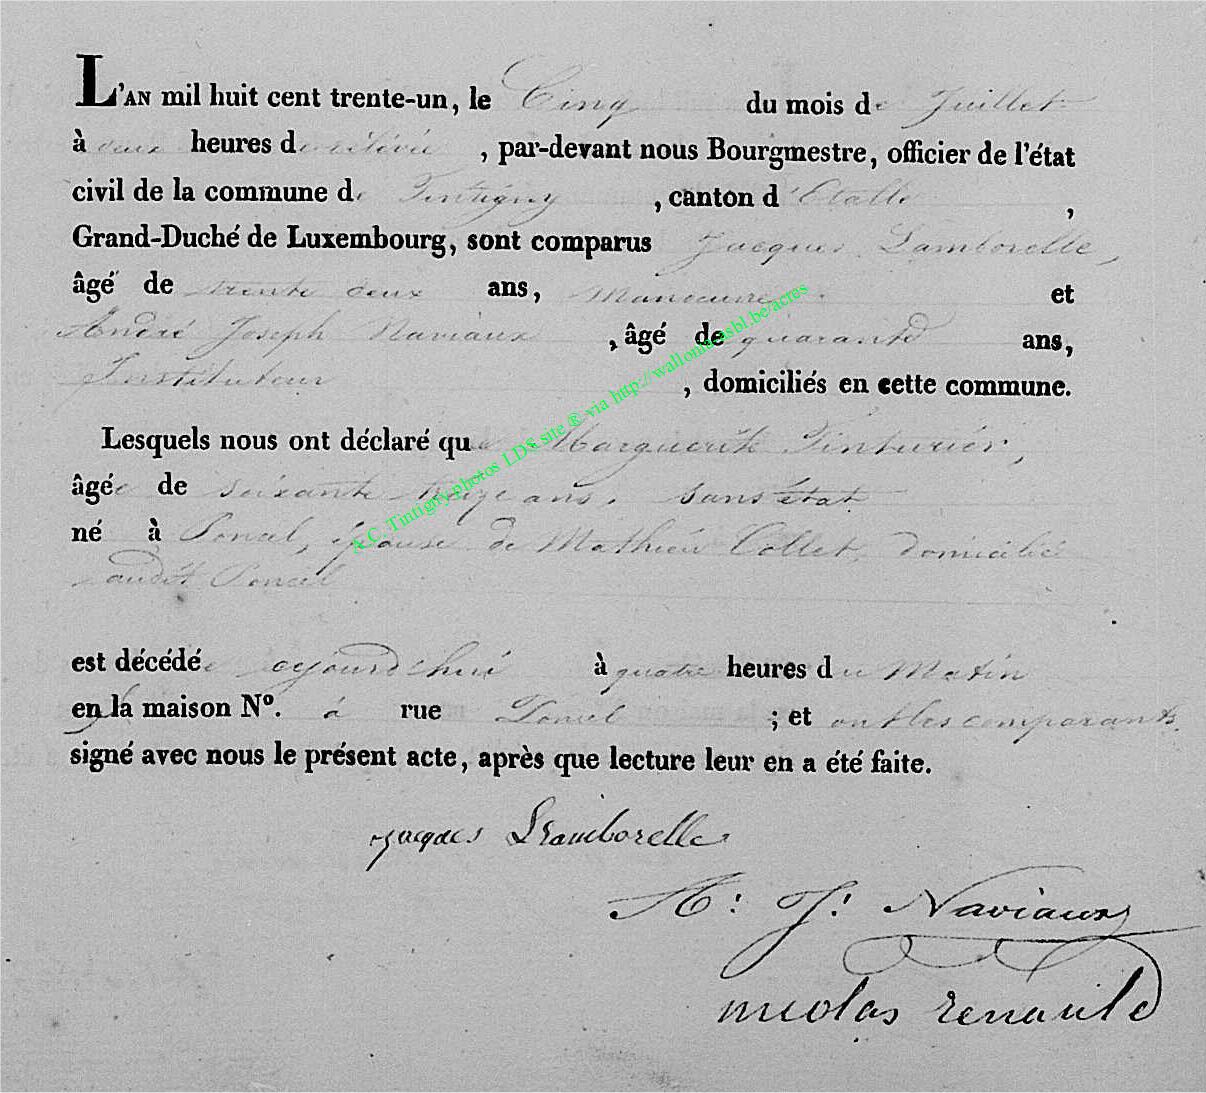 L'AN mil huit cent trente-un, le Cinq du mois de Juillet
à deux heures de relévée, par-devant nous Bourgmestre, officier de l'état
civil de la commune de Tintigny, canton d'Etalle,
Grand-Duché de Luxembourg, sont comparus Jacques Lamborelle,
âgé de trente deux ans, Manoeuvre et
André Joseph Naviaux, âgé de quarante ans,
Instituteur, domiciliés en cette commune.
Lesquels nous ont déclaré que Marguerite Tinturier,
âgée de soixante treize ans, sans état
né à Poncel, épouse de Mathieu Collet, domicilié
audit Poncel
est décédée aujourd'hui à quatre heures du Matin
en la maison Nº. à rue Poncel ; et ont les comparants
signé avec nous le présent acte, après que lecture leur en a été faite.
Jacques Lamborelle
A: J: Naviaux
nicolas renauld
A.C. Tintigny photos LDS site ® via http://wallonia-asbl.be/acres